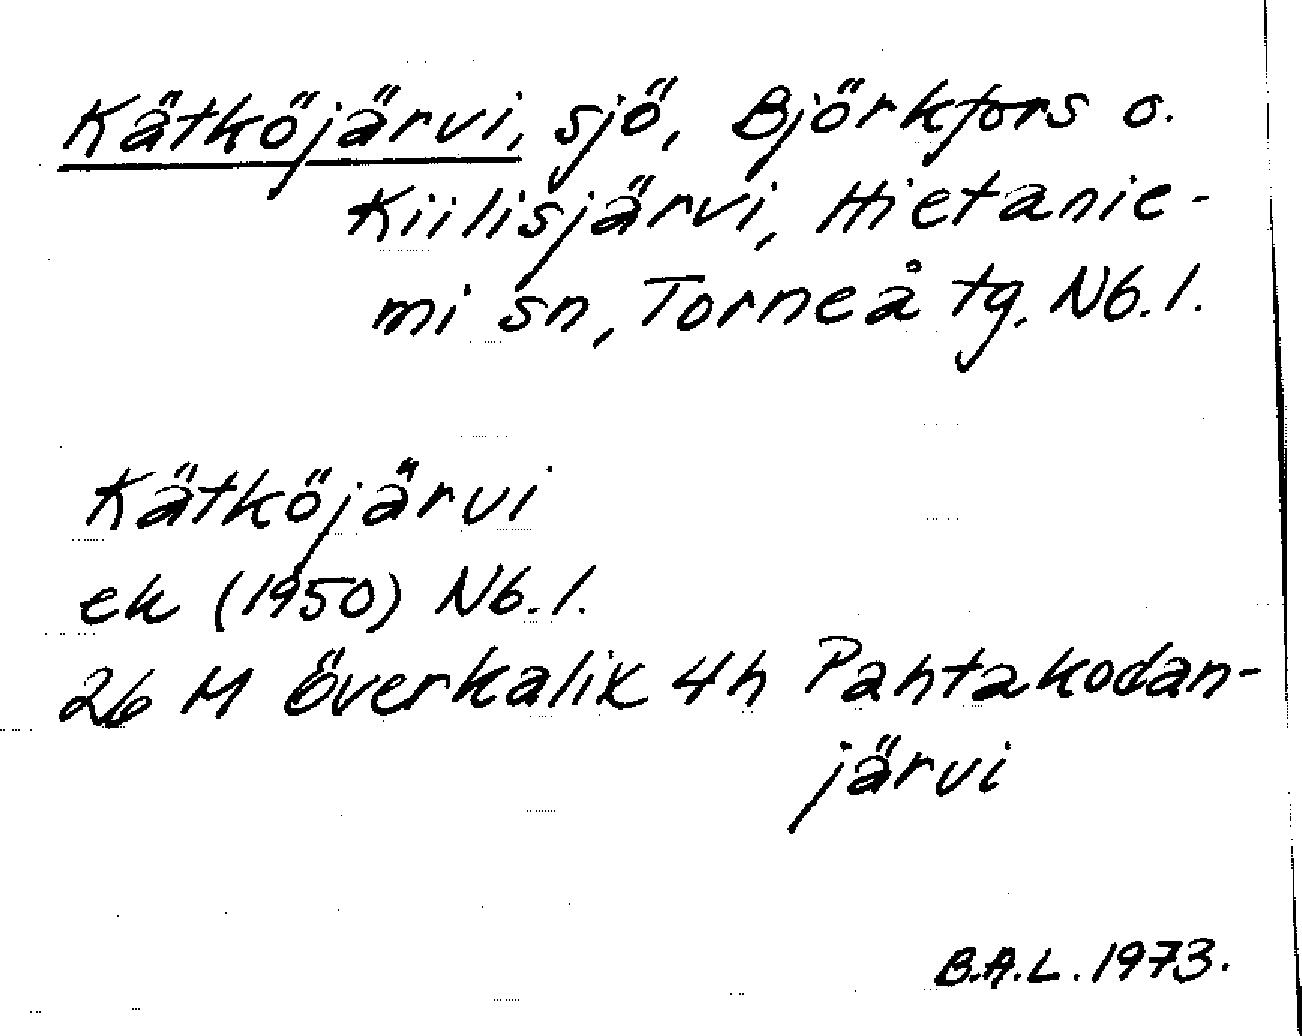 Kätköjärvi, sjö, Björkfors o.
Kiilisjärvi, Hietanie-
mi sn, Torneå tg. Nb. l.
Kätköjärvi
ek (1950) Nb. l.
26 M Överkalix 4h Pahtakodan-
järvi
B.A.L. 1973.